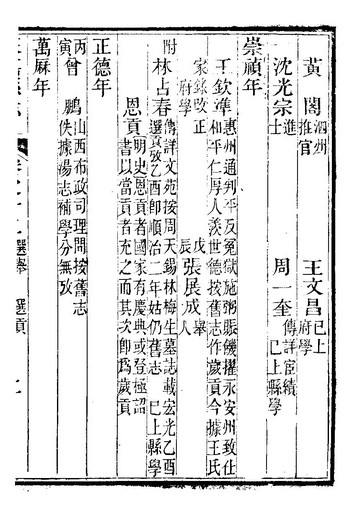 黃閣 泗州推官 王文昌 已上府學
沈光宗 進士 周一奎 傳詳宦績 已上縣學
崇禎年
王欽準 惠州通判平反冤獄施粥賑饑擢永安州致仕和平仁厚人羨世德按舊志作歲貢今據王氏
家錄改正 府學 戊辰 張展成 舉人
附 林占春 傳詳文苑按周天錫林梅生墓誌載宏光乙酉選貢攷乙酉卽順治二年姑仍舊志 已上縣學
恩貢 明史恩貢者國家有慶典或登極詔書以當貢者充之而其次卽爲歲貢
正德年
丙寅 曾鵬 山西布政司理問按舊志佚據湯志補學分無攷
萬厤年
選舉 選貢